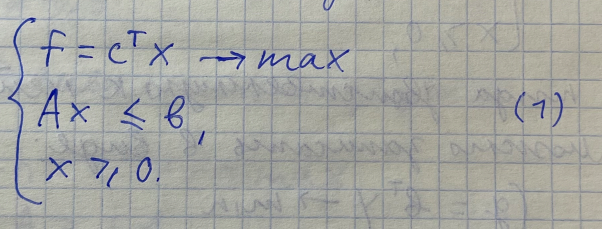 f = cᵀx → max
Ax ≤ b,
(1)
x ≥ 0.